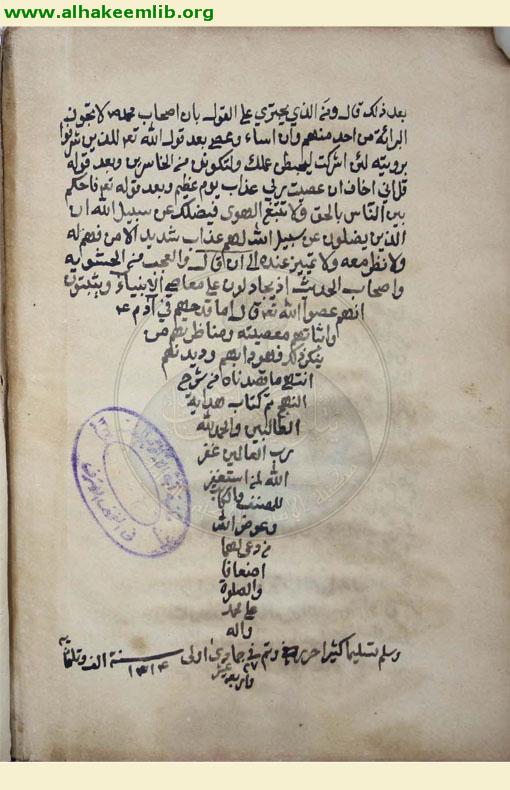 www.alhakeemlib.org
بعد ذلك قال ومن الذي يجتري على القول بان اصحاب محمد ص لا تجوز
البرائة من احد منهم وان اساء وعصى بعد قوله الله تعم للذين شرفوا
برويته لئن اشركت ليحبطن عملك ولتكونن من الخاسرين وبعد قوله
قل اني اخاف ان عصيت ربي عذاب يوم عظيم وبعد قوله تعم فاحكم
بين الناس بالحق ولا تتبع الهوى فيضلك عن سبيل الله ان
الذين يضلون عن سبيل الله لهم عذاب شديد الا من فهم له
ولا نظر معه ولا تمييز عنده الى ان قال والعجب من الحشويه
واصحاب الحديث اذ يجادلون على معاصي الانبياء ويثبتون
انهم عصوا الله تعم قال اما قدحهم في ادم ع
واثباتهم معصيته ومناظرتهم من
ينكر ذلك فهو دابهم وديدنهم
انتهى ما قصدناه من شرح
النهج تم كتاب هداية
الطالبين والحمد لله
رب العالمين غفر
الله لمن استغفر
للمصنف والكاتب
وعوض الله
من دعى لهما
اضعافا
والصلوة
على محمد
واله
وسلم تسليما كثيرا وتم في جمادي اولى سنة الف وثلثمائه
١٣١٤
واربعة عشر